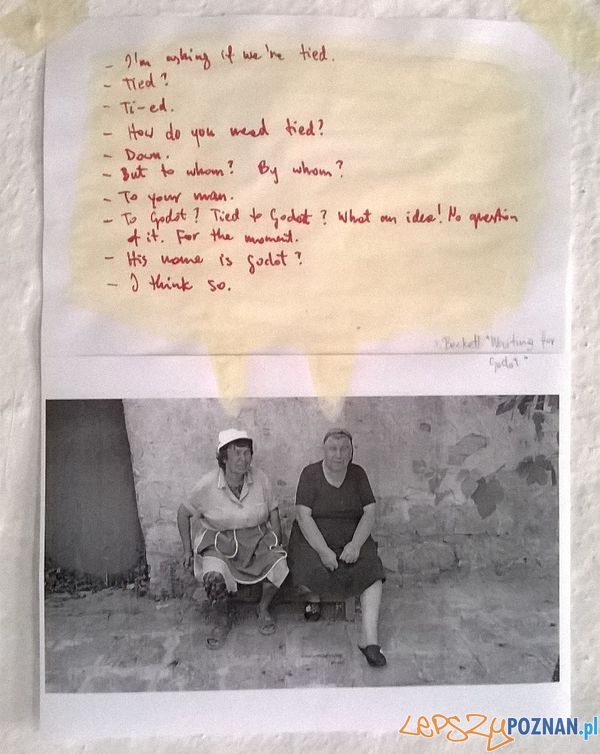 - I'm asking if we're tied.
- Tied?
- Ti-ed.
- How do you mean tied?
- Down.
- But to whom? By whom?
- To your man.
- To Godot? Tied to Godot? What an idea! No question
of it. For the moment.
- His name is Godot?
- I think so.
S. Beckett "Waiting for
Godot"
LEPSZY POZNAN.pl